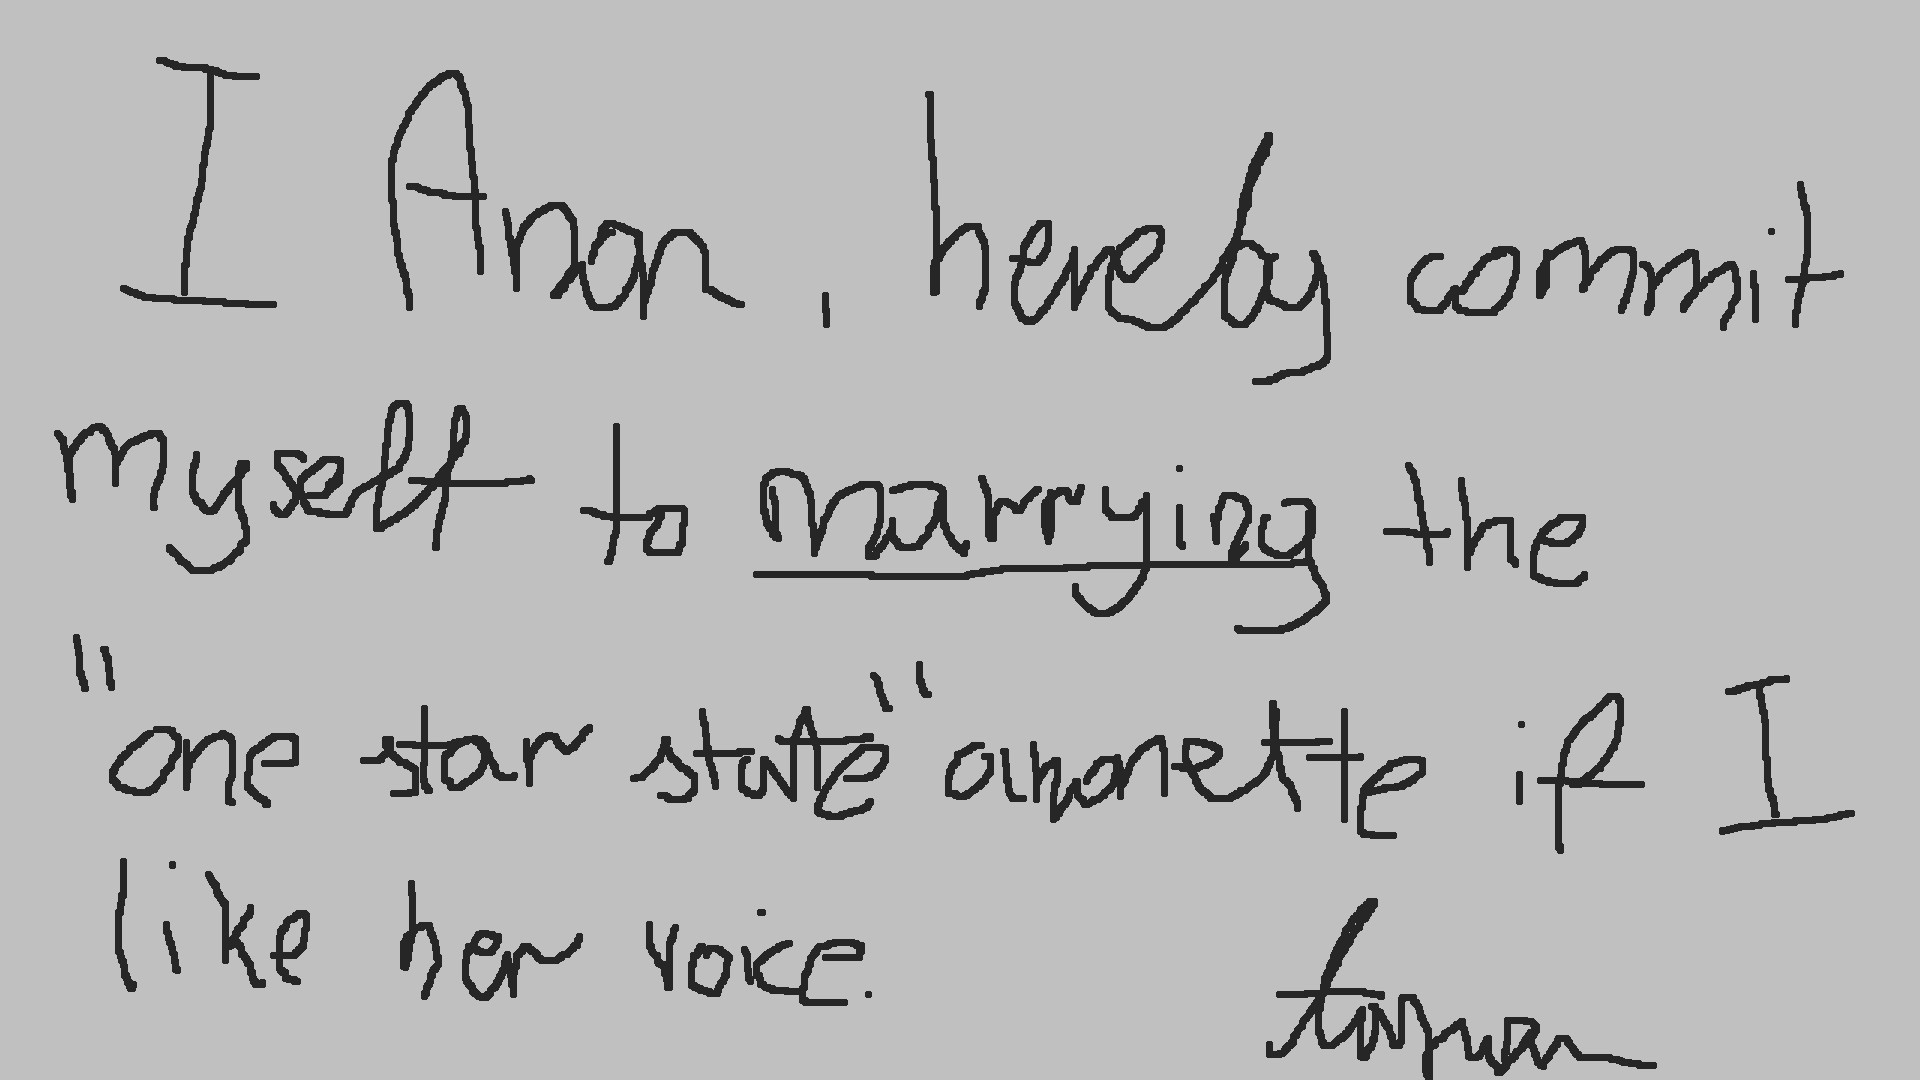 I Anon, hereby commit
myself to marrying the
"one star state" anonette if I
like her voice.